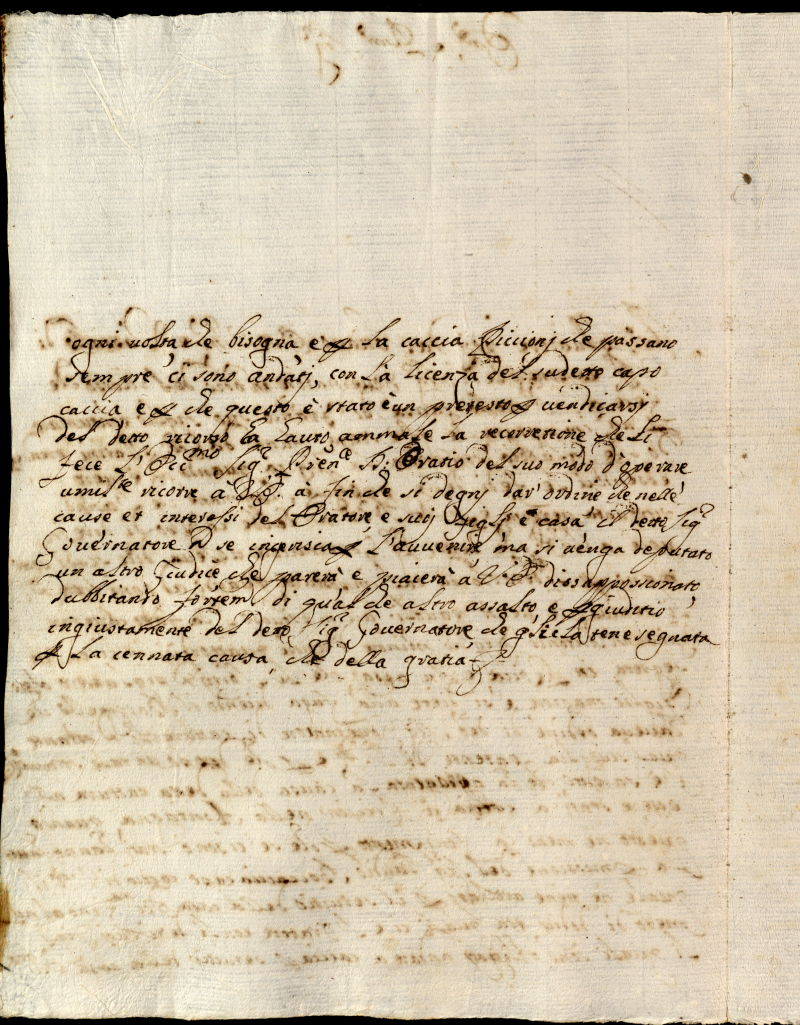 ogni volta che bisogna e p la caccia Piccionj che passano
sempre ci sono andatj, con la licenza del sudetto capo
caccia e p che questo è stato è un pretesto p vendicarsj
del detto ricorso la
fece l'Ecc.mo Sig.r Pren.e D. Oratio del suo modo d'operare
umil.te ricorre à V.E. à fin che si degnj dar' ordine che nelle
cause et interessi del Oratore, e suoj figlj e casa il detto Sig.r
Governatore n se ingerisca p l'avvenire ma si venga deputato
un altro Giudice che parerà e piacerà à V.E. dissappossionato
dubbitando fortem di qual che altro assalto, e pgiuditio
ingiustamente del deto Sig.r Governatore che gliela tene segnata
p la cennata causa, che della gratia